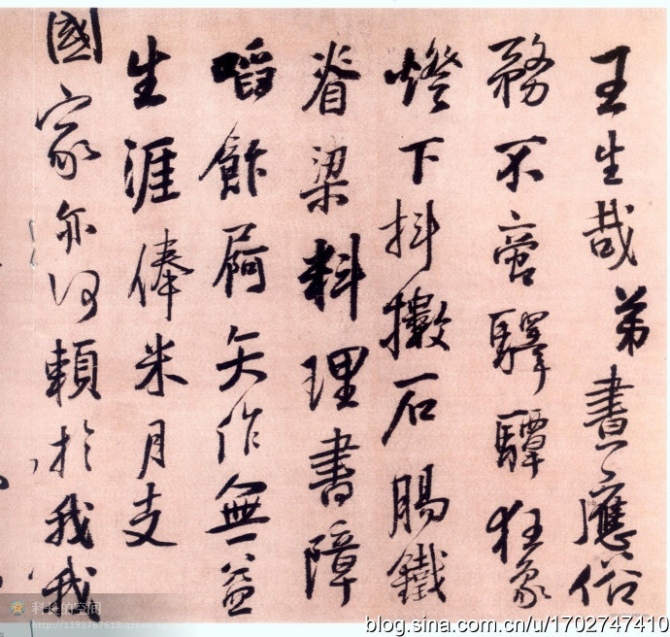 王生哉弟晝應俗
務不啻驛驔狂象
燈下抖擻石腸鐵
脊梁料理書障
嚼飯屙矢作無益
生涯俸米月支
國家亦何賴於我我
blog.sina.com.cn/u/1702747410